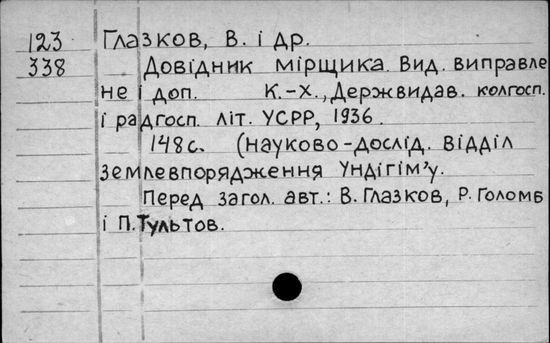 123 Глазков, В. і др.
338 Довідник мірщика. Вид. виправле
не і доп. К.-Х., Держвидав. колгосп.
і радгосп. літ. УСРР, 1936.
148с. (науково-дослід. відділ
землевпорядження Ундігім'у.
Перед загол. авт.: В. Глазков, Р. Голомб
і П. Тультов.